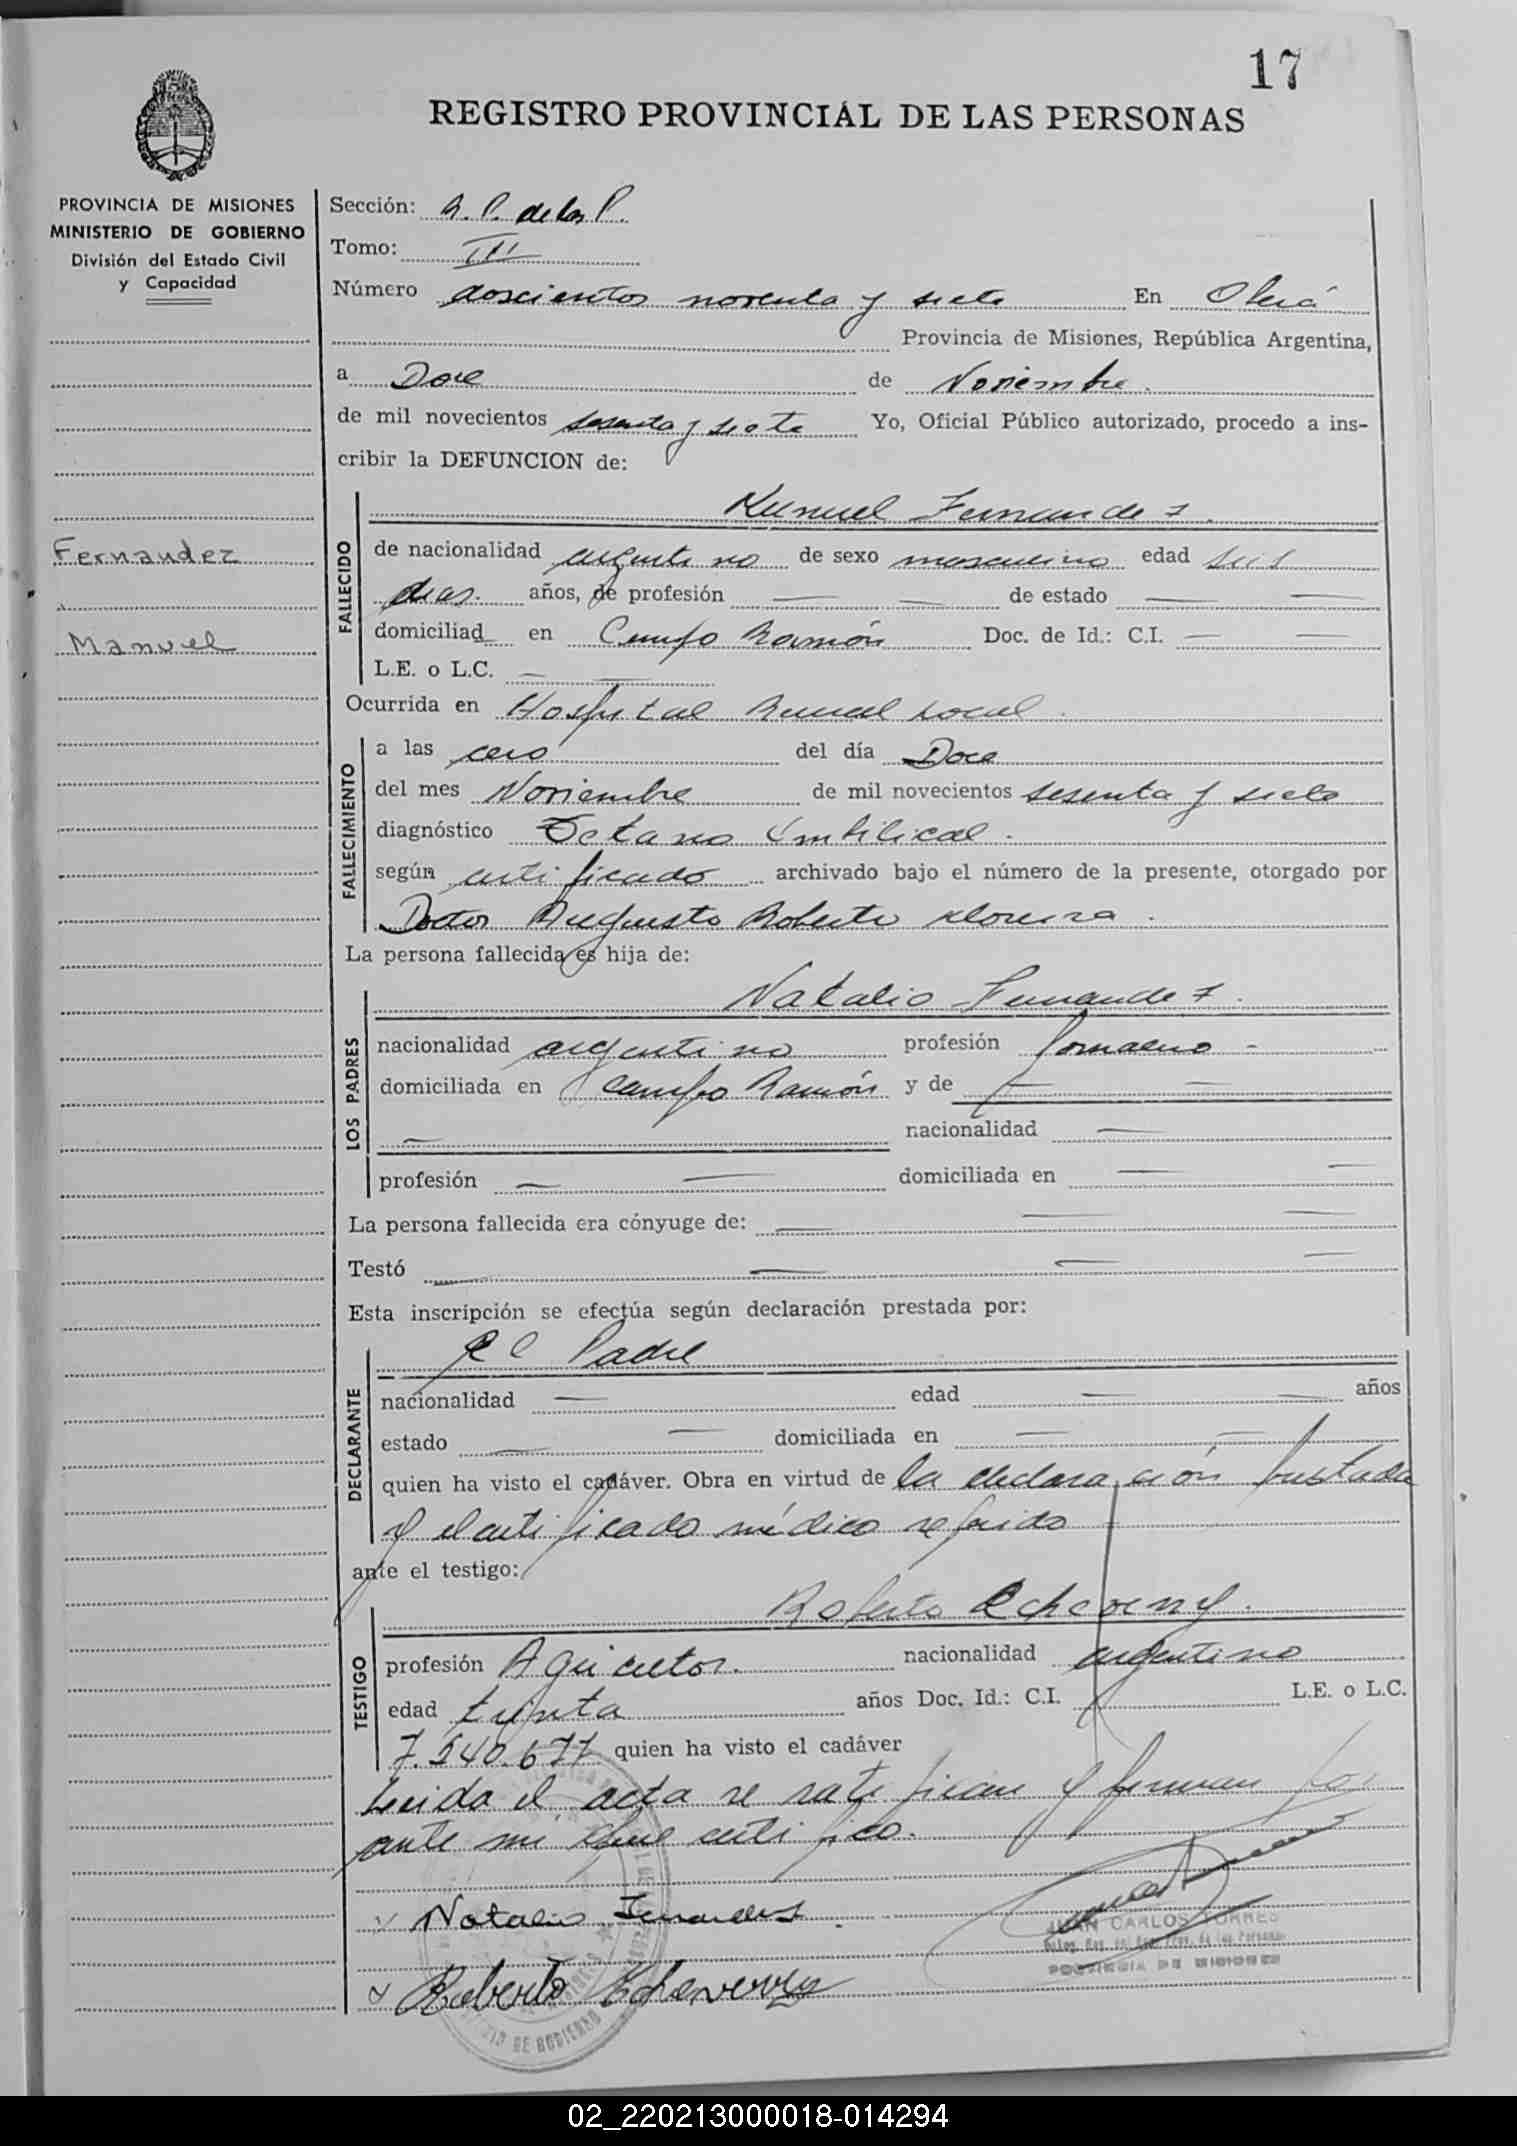 17
REGISTRO PROVINCIAL DE LAS PERSONAS
PROVINCIA DE MISIONES
MINISTERIO DE GOBIERNO
División del Estado Civil
y Capacidad
Fernandez
Manuel
Sección: R. P. de las P.
Tomo: III
Número doscientos noventa y siete En Oberá
Provincia de Misiones, República Argentina,
a Doce de Noviembre.
de mil novecientos sesenta y siete Yo, Oficial Público autorizado, procedo a ins-
cribir la DEFUNCION de:
Manuel Fernandez.
FALLECIDO
de nacionalidad argentino de sexo masculino edad seis
dias. años, de profesión — — de estado — —
domiciliad en Campo Ramón Doc. de Id.: C.I. — —
L.E. o L.C. — —
Ocurrida en Hospital Rural local.
FALLECIMIENTO
a las cero del día Doce
del mes Noviembre de mil novecientos sesenta y siete
diagnóstico Tetano Umbilical.
según certificado archivado bajo el número de la presente, otorgado por
Doctor Augusto Roberto.
La persona fallecida es hija de:
Natalio Fernandez.
LOS PADRES
nacionalidad argentino profesión Jornalero -
domiciliada en Campo Ramón y de — —
— nacionalidad —
profesión — — domiciliada en — —
La persona fallecida era cónyuge de: — — —
Testó — — —
Esta inscripción se efectúa según declaración prestada por:
El Padre
DECLARANTE
nacionalidad — edad — — años
estado — — domiciliada en — —
quien ha visto el cadáver. Obra en virtud de la declaración prestada
y el certificado médico referido
ante el testigo:
Roberto Echeverry.
TESTIGO
profesión Agricultor. nacionalidad argentino
edad treinta años Doc. Id.: C.I. L.E. o L.C.
7.240.677 quien ha visto el cadáver
Leida el acta se ratifican y firman
ante mi que certifico.
Natalio Fernandes
Roberto Echeverry
JUAN CARLOS TORRES
PROVINCIA DE MISIONES
DE GOBIERNO
02_220213000018-014294